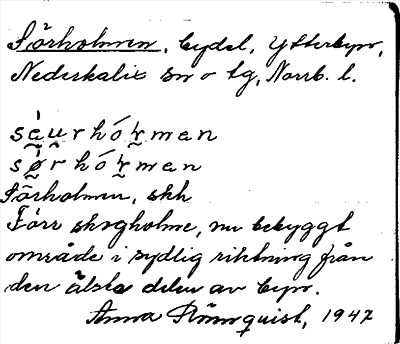 Sörholmen, bydel, Ytterbyn,
Nederkalix sn o tg, Norrb. l.
sàurhórman
sǿrhórman
Sörholmen, skh
Förr skogholme, nu bebyggt
område i sydlig riktning från
den älsta delen av byn.
Anna Rönnquist, 1947